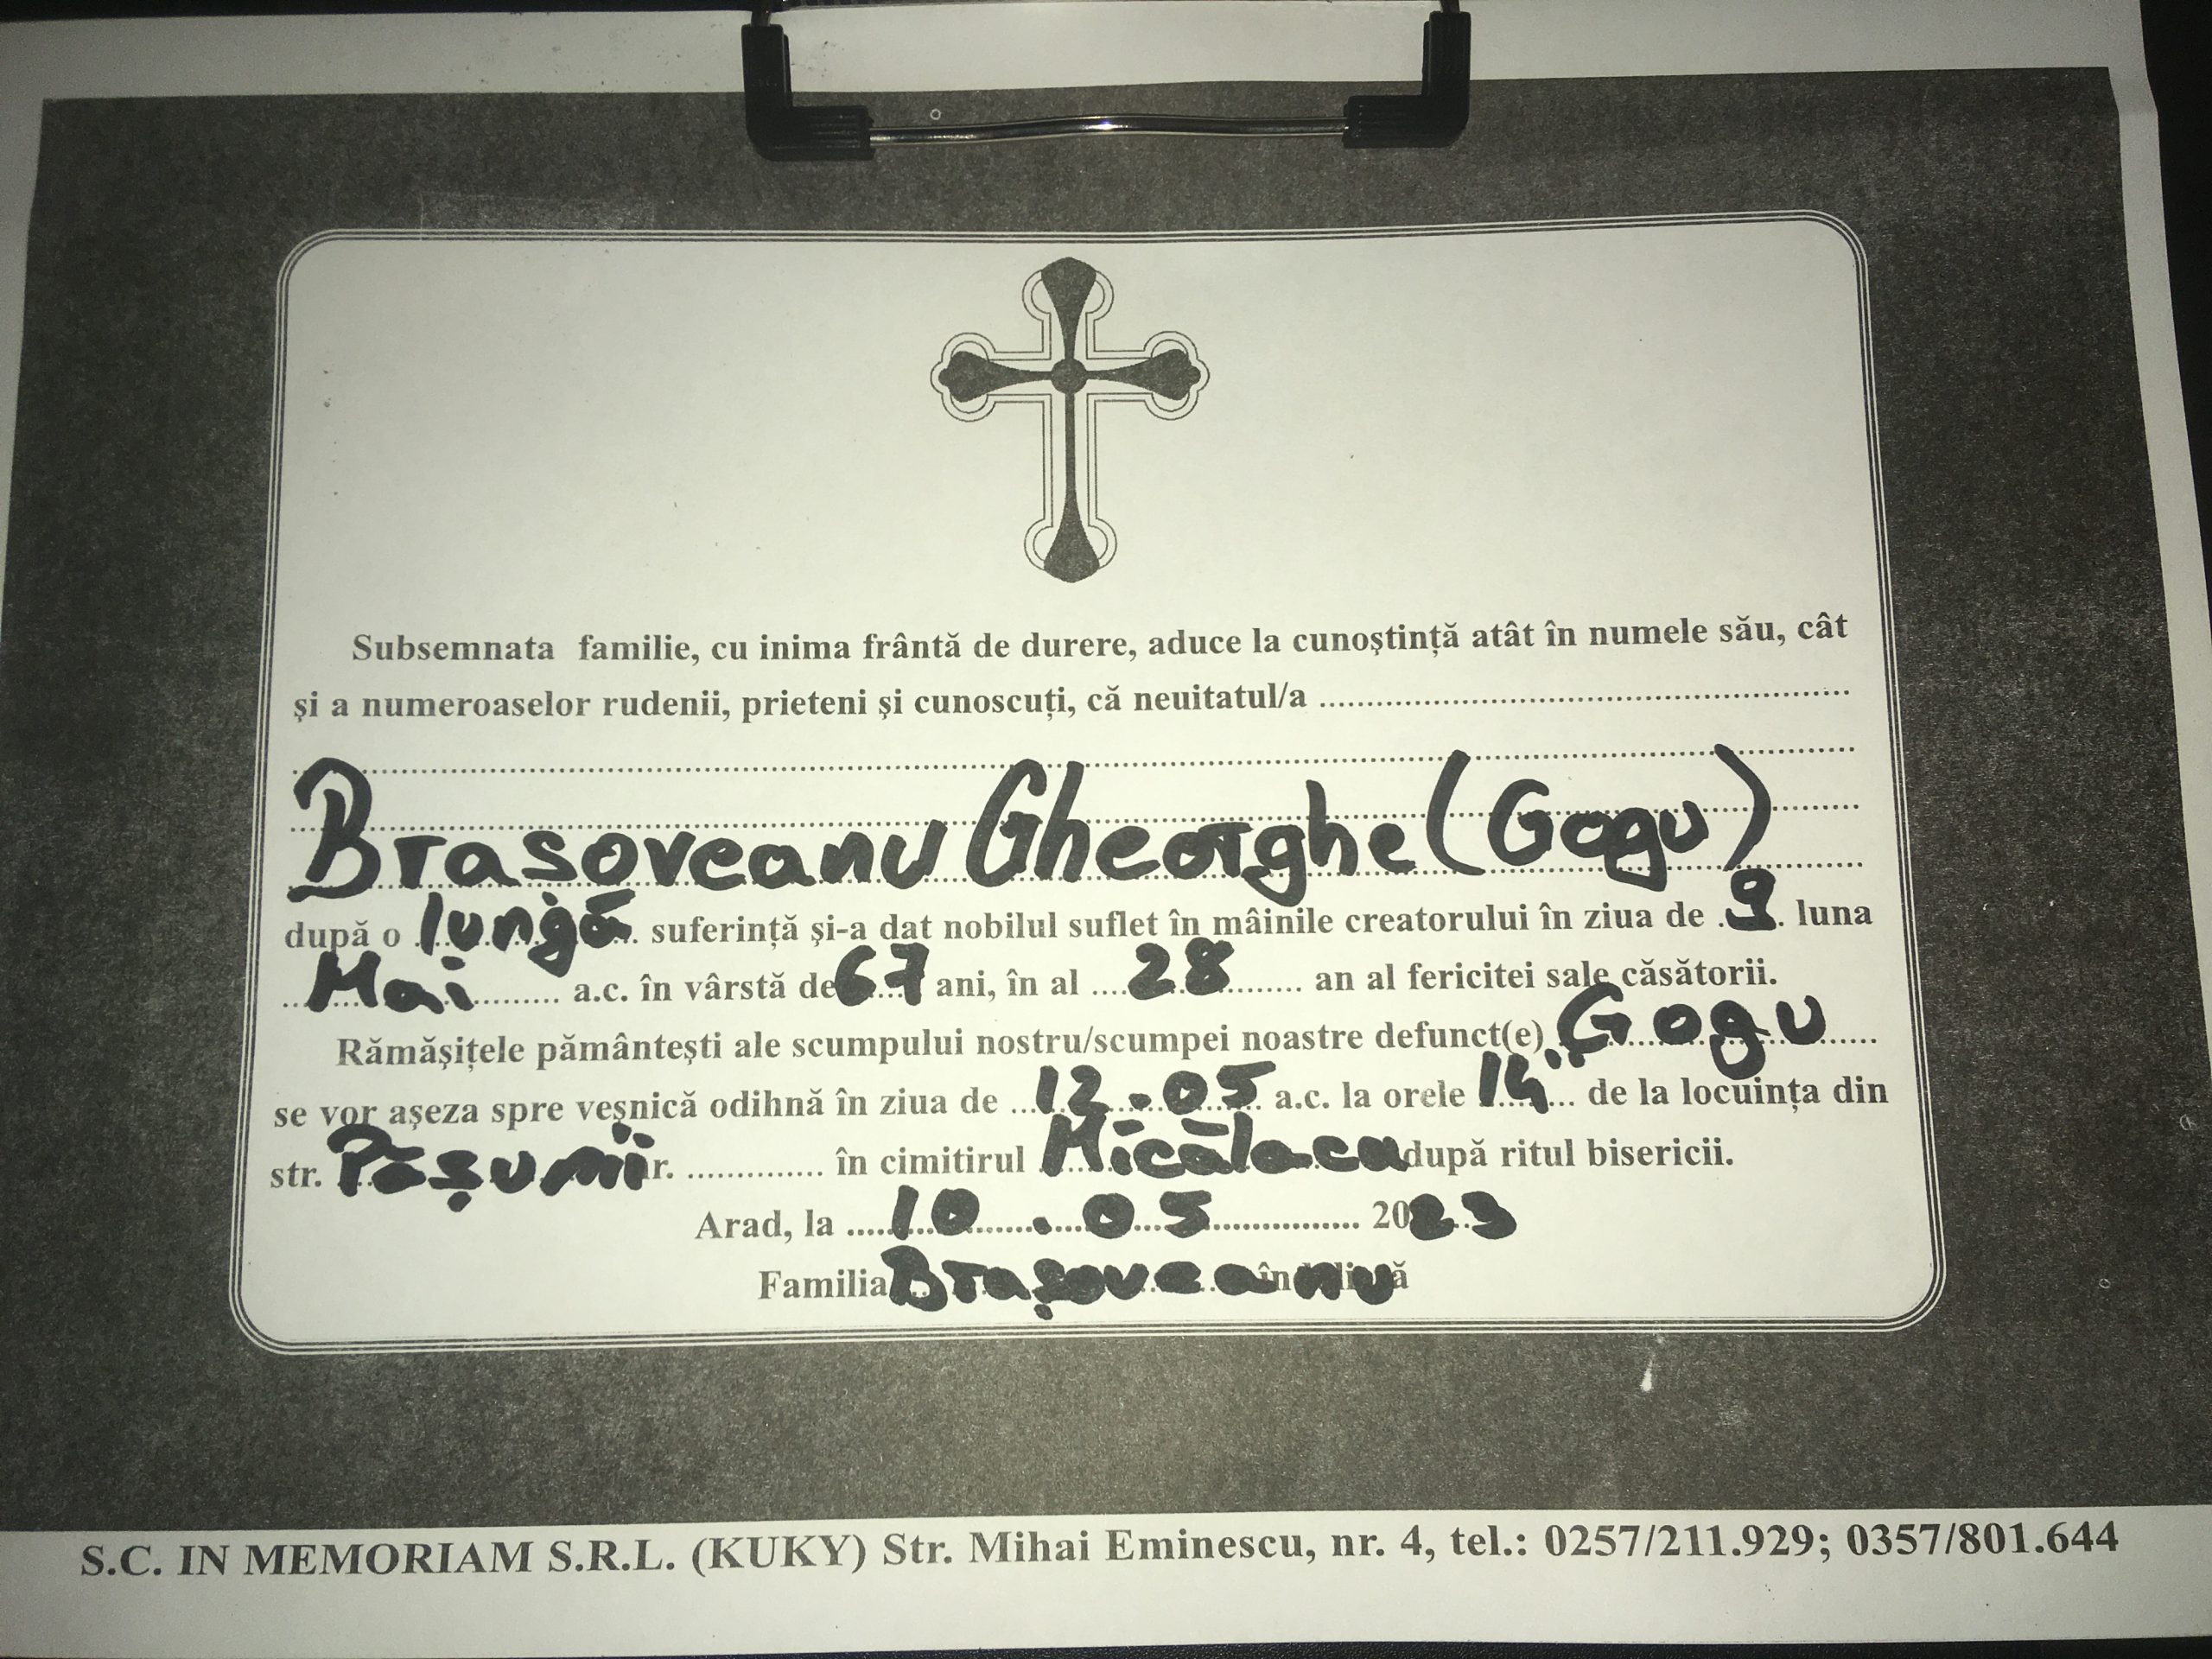 Subsemnata familie, cu inima frântă de durere, aduce la cunoştinţă atât în numele său, cât
şi a numeroaselor rudenii, prieteni şi cunoscuţi, că neuitatul/a ..........
Braşoveanu Gheorghe (Gogu)
după o lungă suferinţă şi-a dat nobilul suflet în mâinile creatorului în ziua de 9 luna
Mai a.c. în vârstă de 67 ani, în al 28 an al fericitei sale căsătorii.
Rămăşiţele pământeşti ale scumpului nostru/scumpei noastre defunct(e) Gogu
se vor aşeza spre veşnică odihnă în ziua de 12.05 a.c. la orele 14 de la locuinţa din
str. r. .......... în cimitirul Micălaca după ritul bisericii.
Arad, la 10.05 2023
Familia Braşoveanu
S.C. IN MEMORIAM S.R.L. (KUKY) Str. Mihai Eminescu, nr. 4, tel.: 0257/211.929; 0357/801.644